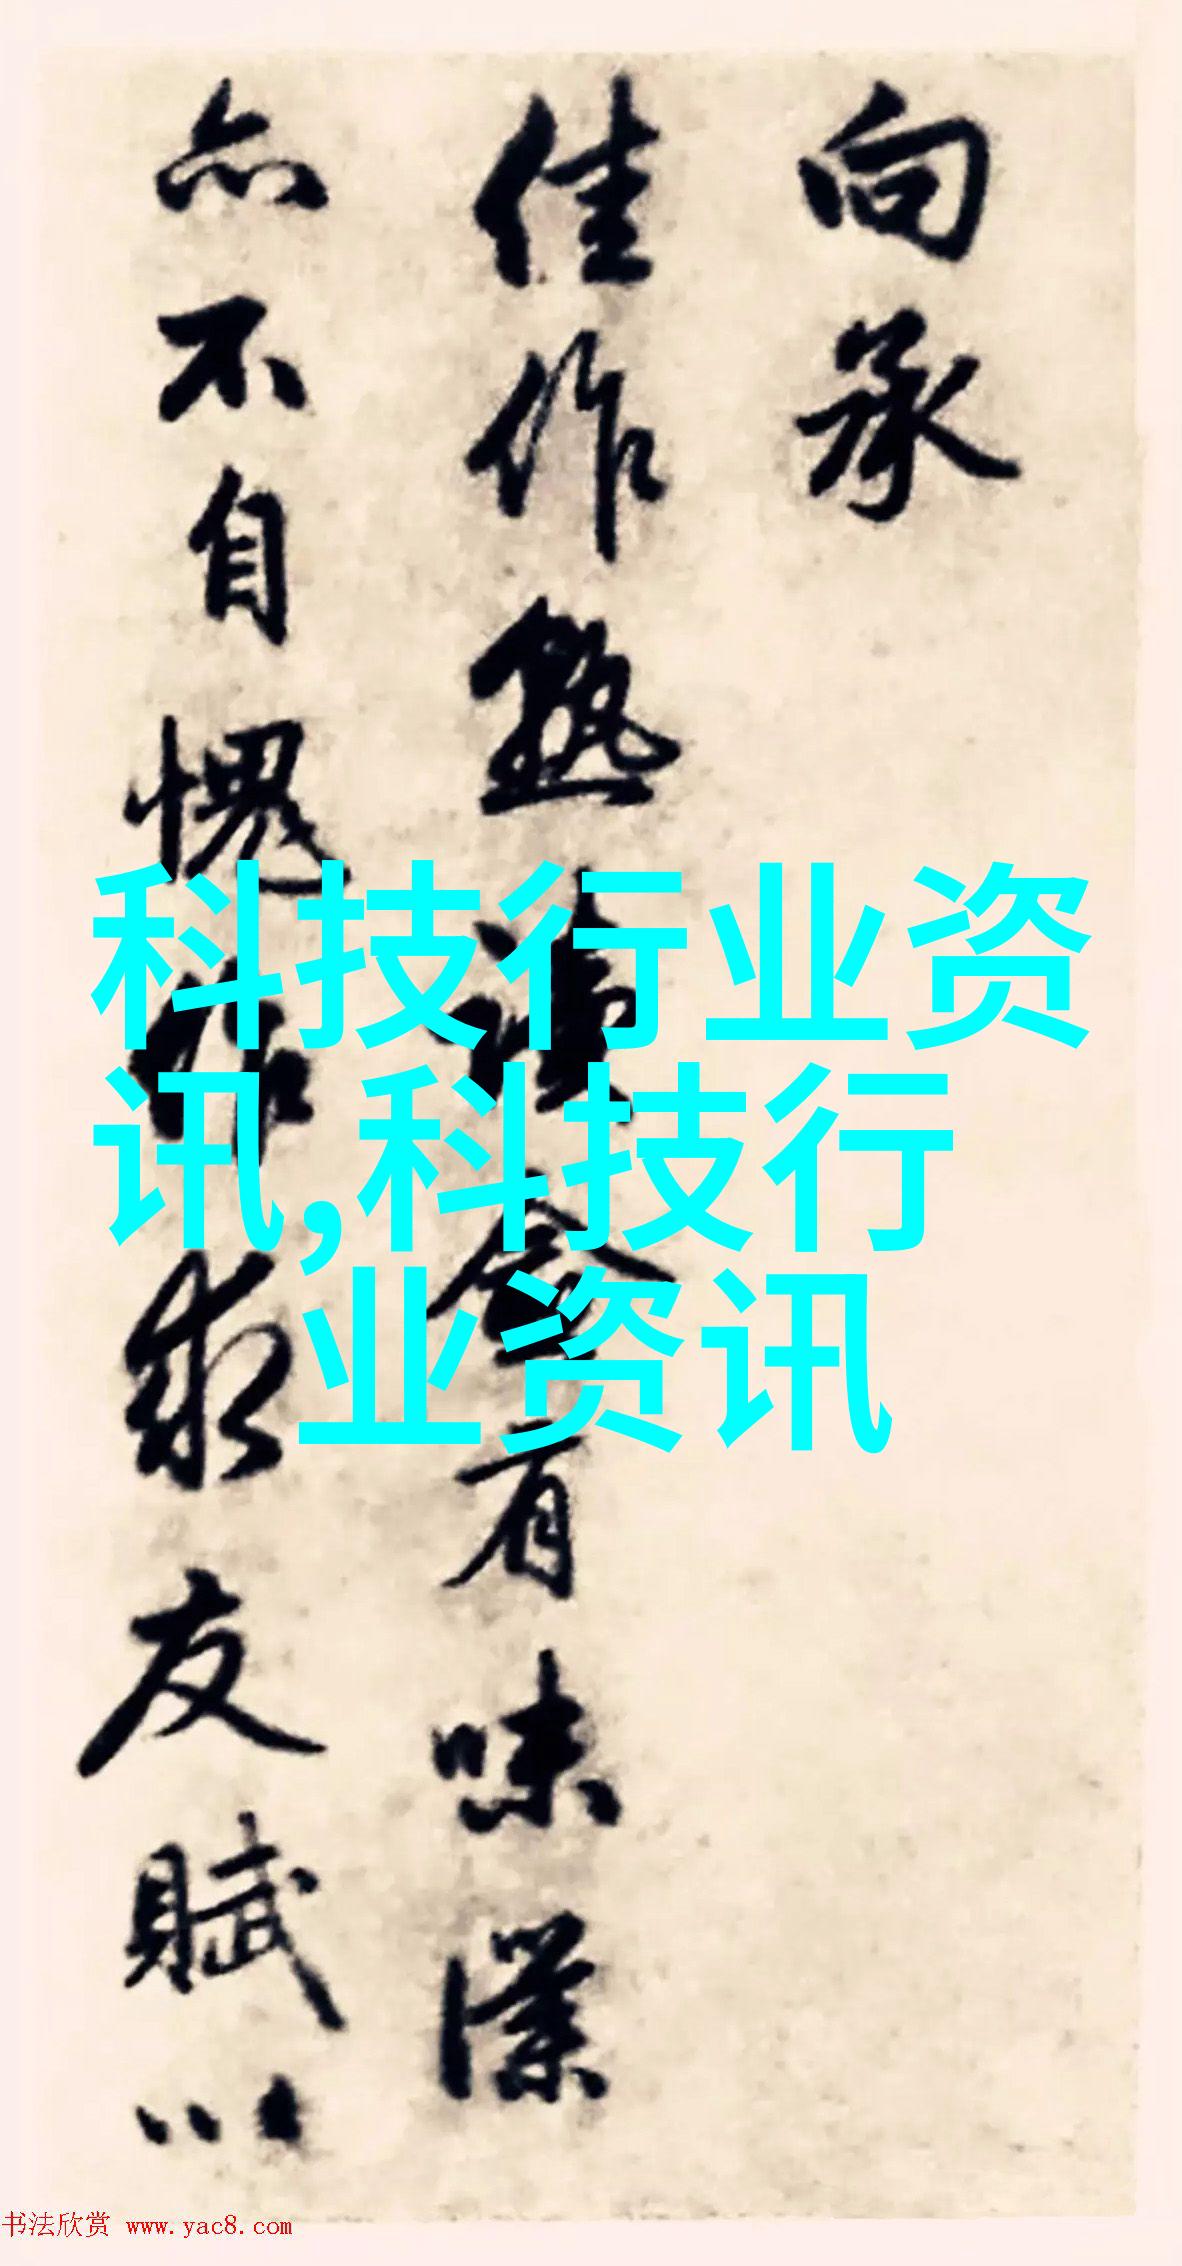 向承
佳作熟读会有味濮
亦不自愧作求友赋以
科技行业资
讯,科技行
业资讯
书法欣赏 www.yac8.com